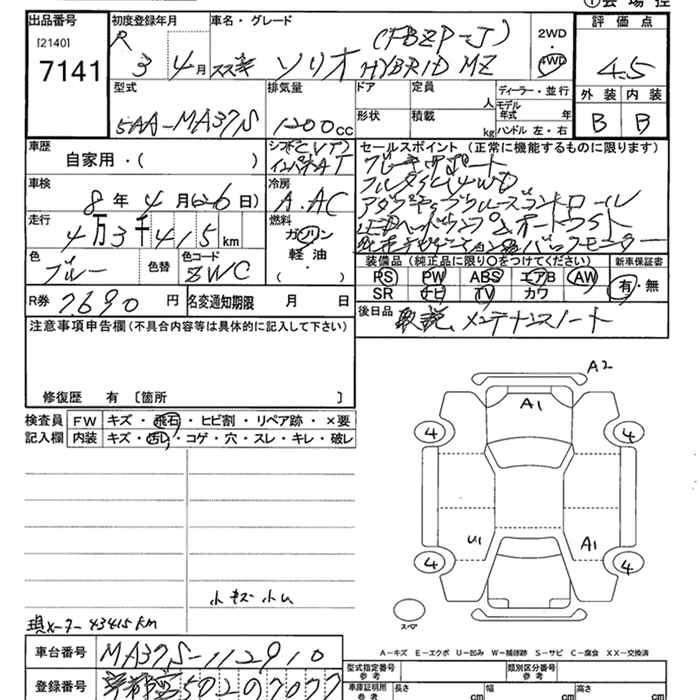 ①会場控
出品番号 初度登録年月 車名・グレード 評価点
[2140] R (FBZP-J) 2WD
7141 3年4月 スズキ ソリオ HYBRID MZ 4WD 4.5
型式 排気量 ドア 定員 人 ディーラー・並行 外装 内装
5AA-MA37S 1200cc 形状 積載 kg モデル年式 年 ハンドル 左・右 B B
車歴 自家用・( ) シフト(CVT) インパネAT セールスポイント(正常に機能するものに限ります)
ブレーキサポート
車検 8年4月(26日) 冷房 A.AC フルタイム4WD
アダプティブクルーズコントロール
走行 4万3千415km 燃料 ガソリン LEDヘッドランプ&オートライト
軽油・( ) バックモニター
色 ブルー 色替 色コード ZWC 装備品(純正品に限り○をつけてください) 新車保証書
PS PW ABS エアB AW 有・無
R券 7,690円 名変通知期限 月 日 SR ナビ TV カワ
注意事項申告欄(不具合内容等は具体的に記入して下さい) 後日品 取説、メンテナンスノート
修復歴 有 〔箇所 〕
A2
A1
検査員記入欄 FW キズ・飛石・ヒビ割・リペア跡・×要
内装 キズ・汚レ・コゲ・穴・スレ・キレ・破レ
4 4
U1 A1
4 4
小キズ 小凹
現メーター 43415km
スペア
A-キズ E-エクボ U-凹み W-補修跡 S-サビ C-腐食 XX-交換済
車台番号 MA37S-112910
型式指定番号 参考 類別区分番号 参考
登録番号 宇都宮502の7077
車庫証明用 参考 長さ cm 幅 cm 高さ cm